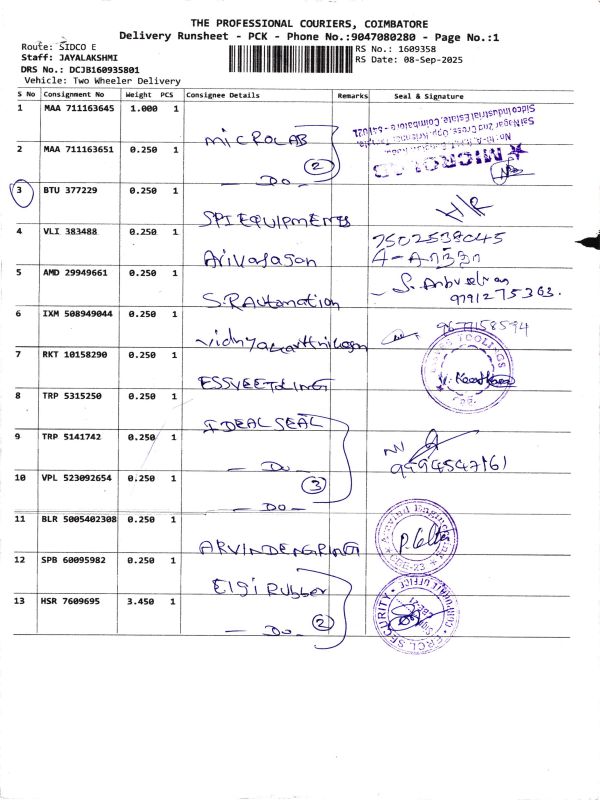 THE PROFESSIONAL COURIERS, COIMBATORE
Delivery Runsheet - PCK - Phone No.:9047080280 - Page No.:1
Route: SIDCO E
RS No.: 1609358
Staff: JAYALAKSHMI
RS Date: 08-Sep-2025
DRS No.: DCJB160935801
Vehicle: Two Wheeler Delivery
S No Consignment No Weight PCS Consignee Details Remarks Seal & Signature
1 MAA 711163645 1.000 1 MICROLAB
2 MAA 711163651 0.250 1 — Do — 2
MICROLAB
Sai Nagar 2nd Cross, Opp. Krishna Temple
Sidco Industrial Estate, Coimbatore - 641021
3 BTU 377229 0.250 1 SPI EQUIPMENTS H/R
4 VLI 383488 0.250 1 Arivalagan 7502539045
5 AMD 29949661 0.250 1 S.R Automation S. Anbuselvan
9791275363.
6 IXM 508949044 0.250 1 Vidhyakarthikeyan 9677158594
7 RKT 10158290 0.250 1 ESSVEETOOLING
TOOLINGS
8 TRP 5315250 0.250 1 IDEAL SEAL
9 TRP 5141742 0.250 1 — Do — 9994547161
10 VPL 523092654 0.250 1 — Do — 3
11 BLR 5005402308 0.250 1 ARVINDENGRING
Arvind Engineering
CBE-23
12 SPB 60095982 0.250 1 Elgi Rubber
13 HSR 7609695 3.450 1 — Do — 2
CORPORATE OFFICE
ERCL SECURITY